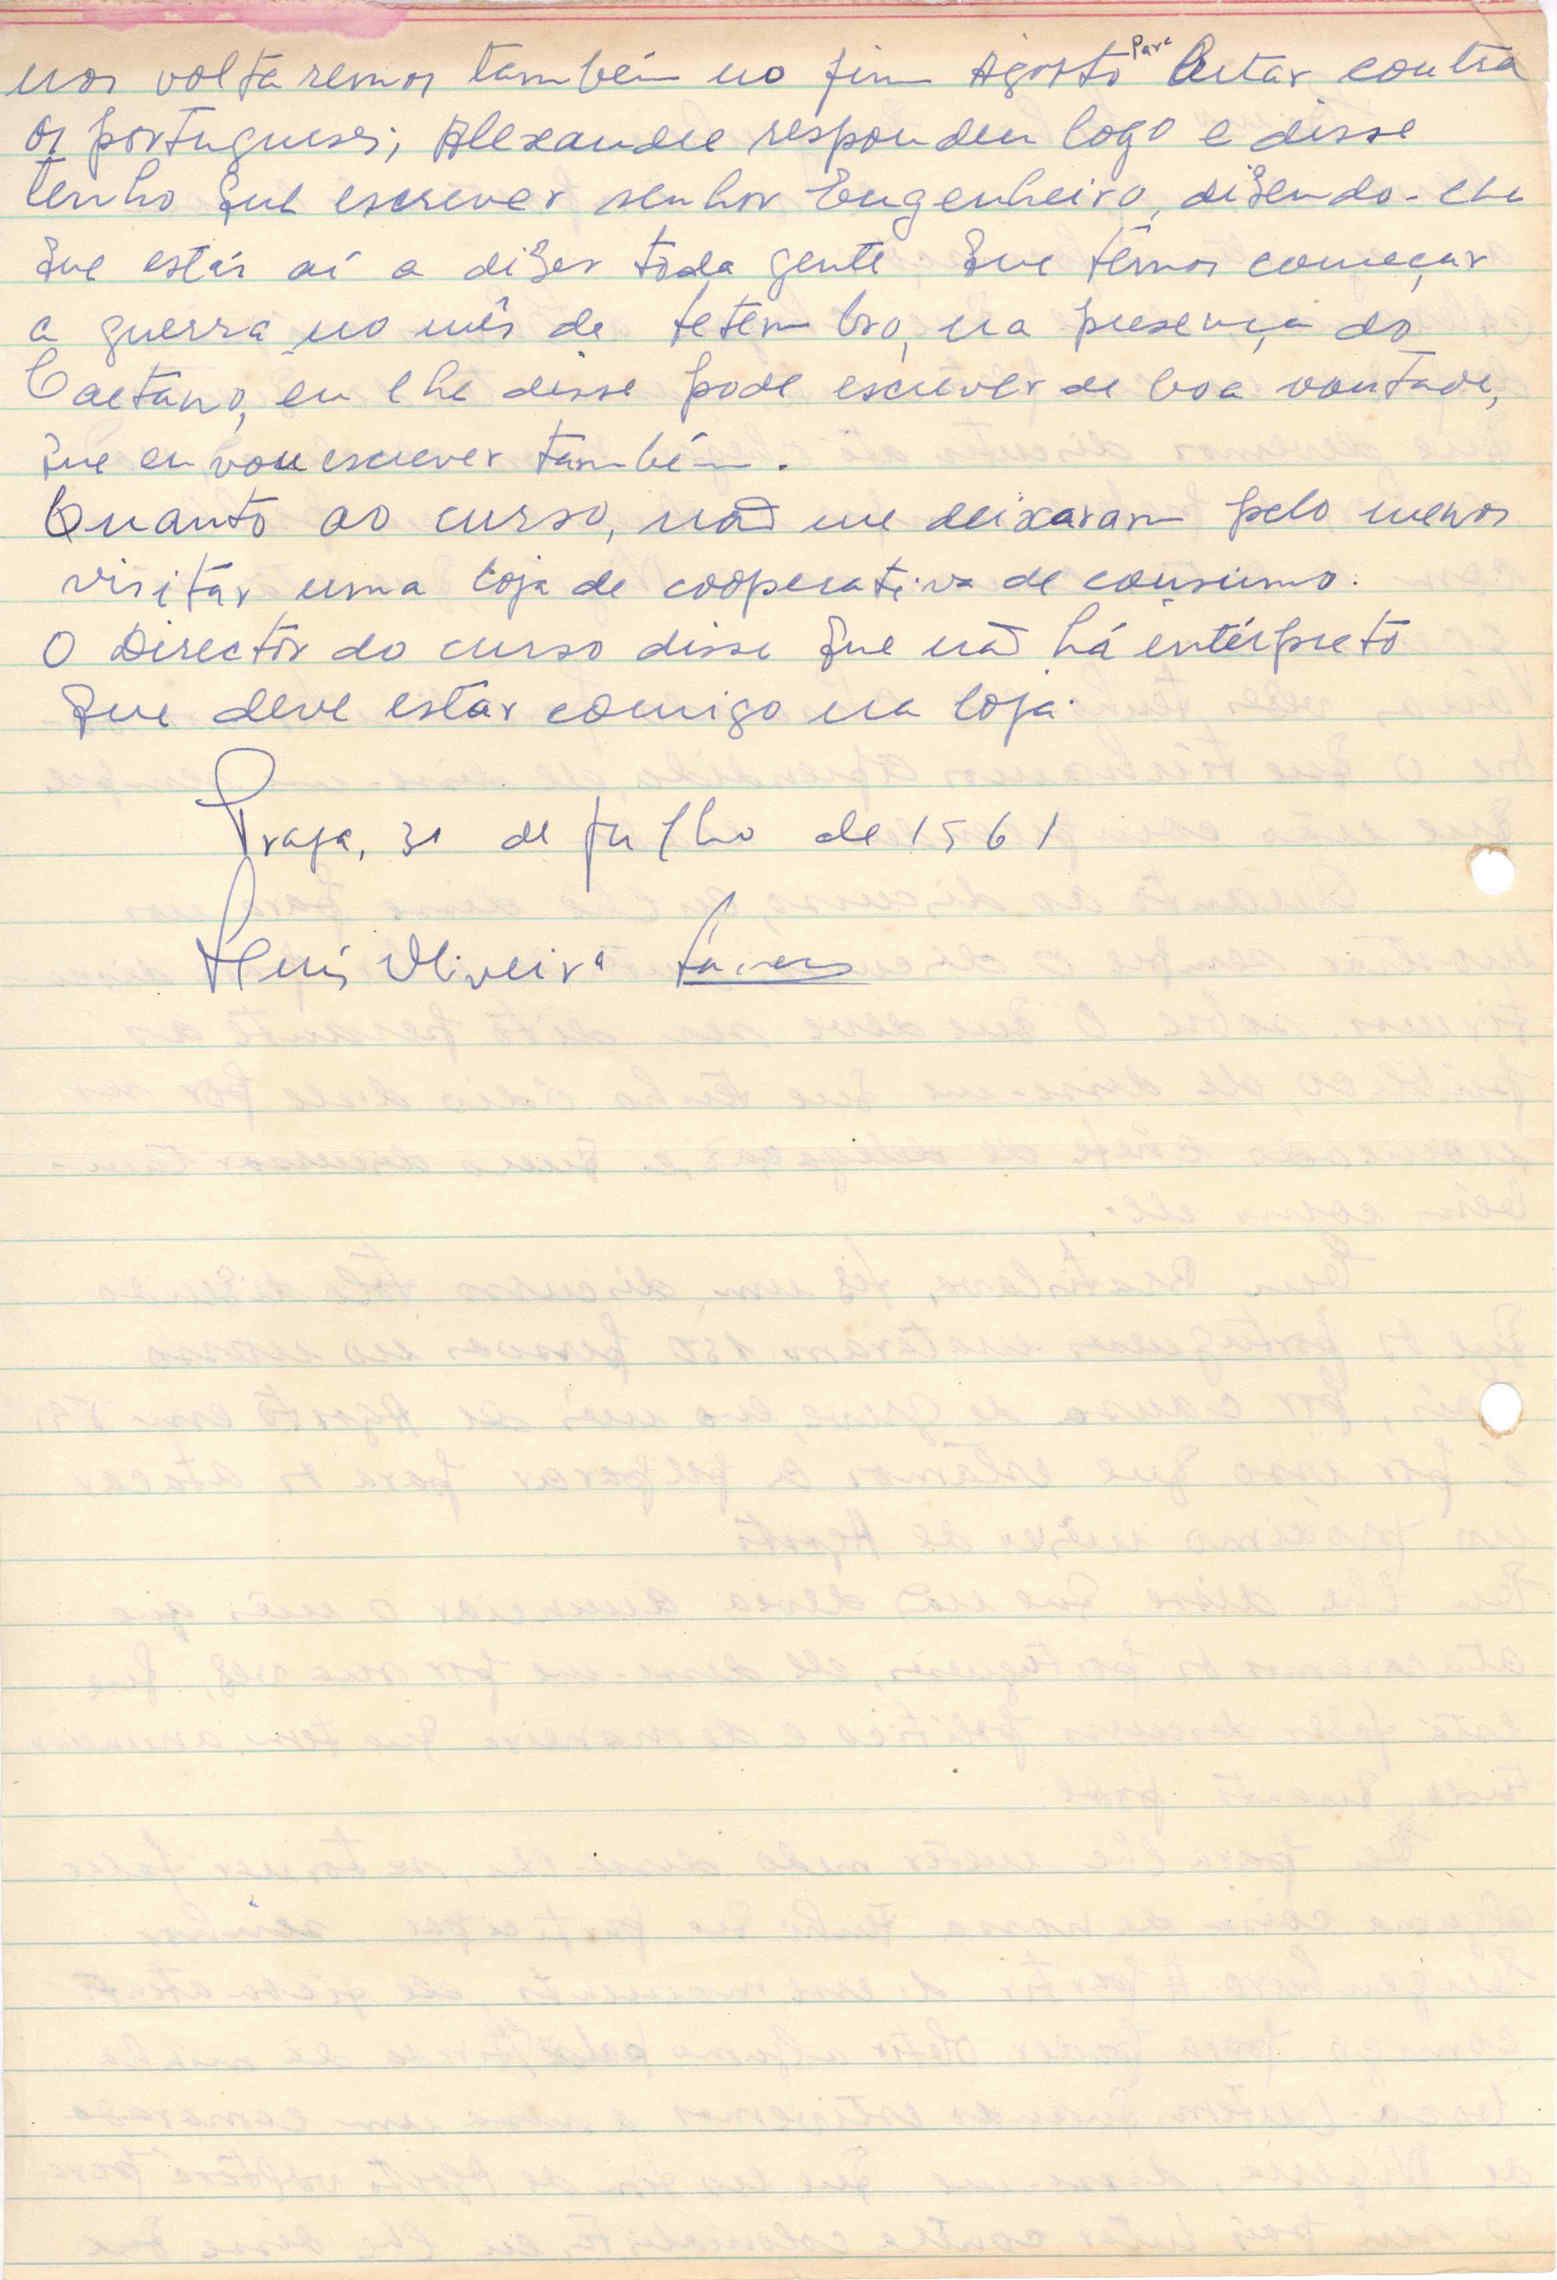 nos voltaremos também no fim Agosto para lutar contra
os portugueses; Alexandre respondeu logo e disse
tenho que escrever senhor Engenheiro, dizendo-lhe
que estás aí a dizer tôda gente que têmos começar
a guerra no mês de Setembro, na presença do
Caetano, eu lhe disse pode escrever de boa vontade,
que eu vou escrever também.
Quanto ao curso, não me deixaram pelo menos
visitar uma loja de cooperativa de consumo.
O Director do curso disse que não há intérpreto
que deve estar comigo na loja.
Praga, 31 de Julho de 1961
Oliveira